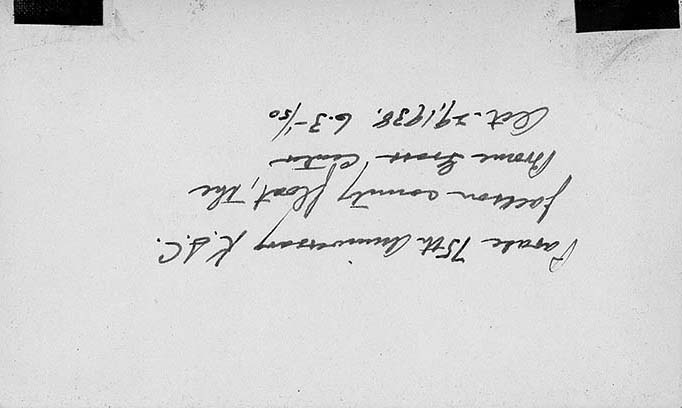 Parade 75th Anniversary K.S.C.
Jackson county float, The
Brome Grass Center
Oct. 29, 1938. 6.3-1/50